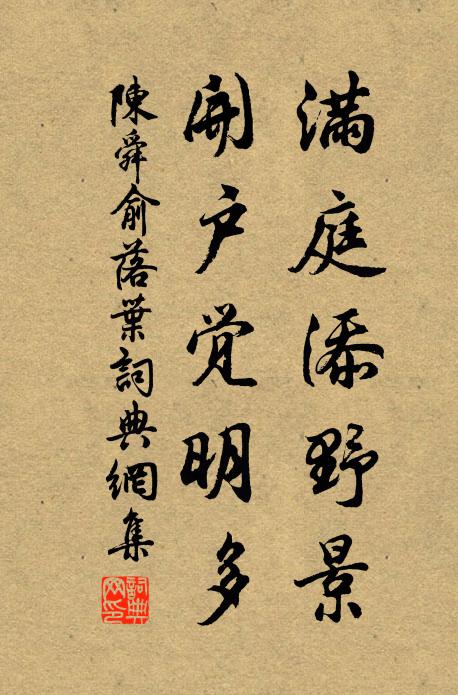 满庭添野景
開户觉明多
陳舜俞落葉詞典網集
詞典网印